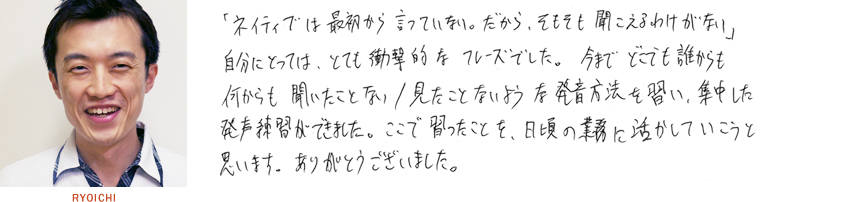 「ネイティブは最初から言っていない。だから、そもそも聞こえるわけがない」
自分にとっては、とても衝撃的なフレーズでした。今までどこでも誰からも
何からも聞いたことない/見たことないような発音方法を習い、集中した
発声練習ができました。ここで習ったことを、日頃の業務に活かしていこうと
思います。ありがとうございました。
RYOICHI